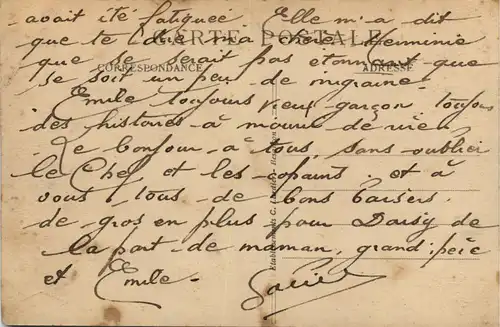 avait été fatiguée Elle m'a dit
CARTE POSTALE
que te dire ma chère Herminie
que ce serait pas etonnant que
CORRESPONDANCE ADRESSE
se soit un peu de migraine.
Emile toujours vieux garçon toujours
des histoires à mourir de rire
Le bonjour à tous, sans oublier
le Chef et les copains. et à
vous tous de bons baisers.
de gros en plus pour Daisy de
la part de maman, grand-père
et Emile.
Etablissements C.